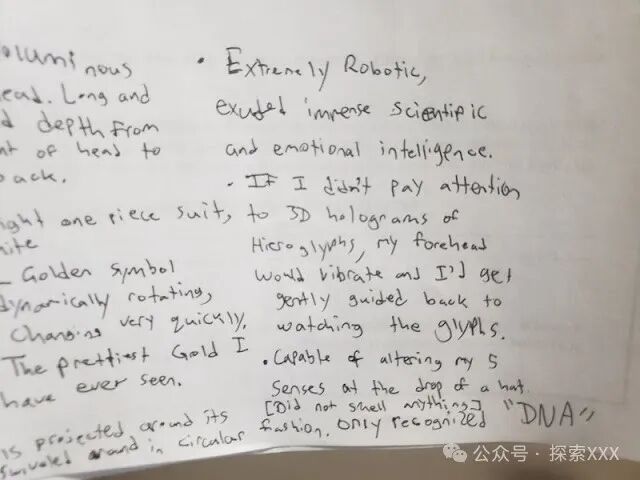 oluminous
ead. Long and
d depth from
nt of head to
ack.
ight one piece suit,
hite
Golden symbol
dynamically rotating,
Changing very quickly.
The prettiest Gold I
have ever seen.
is projected around its
swiveled around in circular
• Extremely Robotic,
exuded immense scientific
and emotional intelligence.
• If I didn't pay attention
to 3D holograms of
Hieroglyphs, my forehead
would vibrate and I'd get
gently guided back to
watching the glyphs.
• Capable of altering my 5
senses at the drop of a hat.
[Did not smell anything]
fashion. only recognized "DNA"
公众号 · 探索XXX